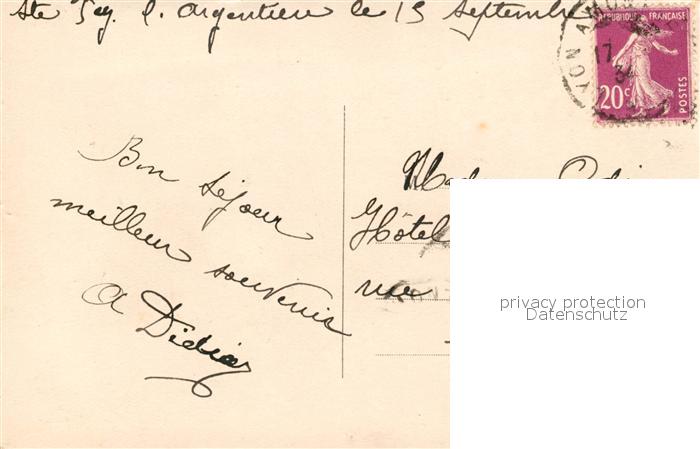 Ste Foy l. argentière le 13 septembre
REPUBLIQUE FRANÇAISE
20c
POSTES
17
34
Bon séjour
meilleur souvenir
A Didier
Hôtel
rue
privacy protection
Datenschutz